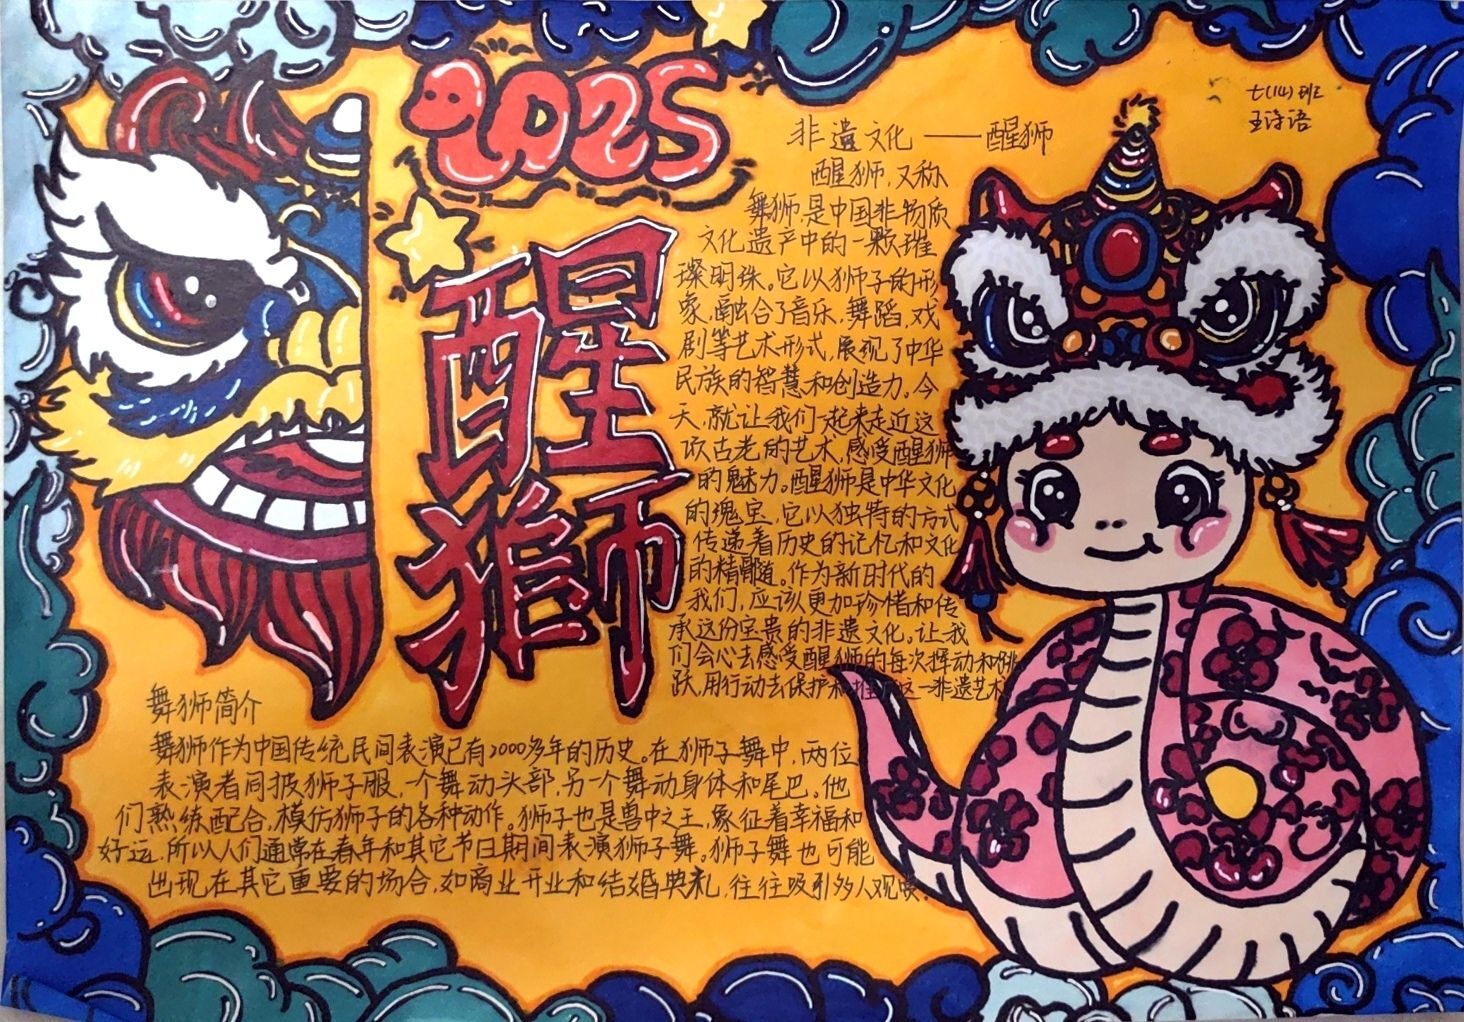 2025
七(14)班
王诗语
醒
狮
非遗文化——醒狮
醒狮,又称
舞狮,是中国非物质
文化遗产中的一颗璀
璨明珠。它以狮子的形
象,融合了音乐,舞蹈,戏
剧等艺术形式,展现了中华
民族的智慧和创造力。今
天,就让我们一起来走近这
项古老的艺术,感受醒狮
的魅力。醒狮是中华文化
的瑰宝,它以独特的方式
传递着历史的记忆和文化
的精髓。作为新时代的
我们,应该更加珍惜和传
承这份宝贵的非遗文化。让我
们会心去感受醒狮的每次挥动和跳
跃,用行动去保护和推广这一非遗艺术
舞狮简介
舞狮作为中国传统民间表演已有2000多年的历史。在狮子舞中,两位
表演者同披狮子服,一个舞动头部,另一个舞动身体和尾巴。他
们熟练配合,模仿狮子的各种动作。狮子也是兽中之王,象征着幸福和
好运,所以人们通常在春年和其它节日期间表演狮子舞。狮子舞也可能
出现在其它重要的场合,如商业开业和结婚典礼,往往吸引多人观赏。